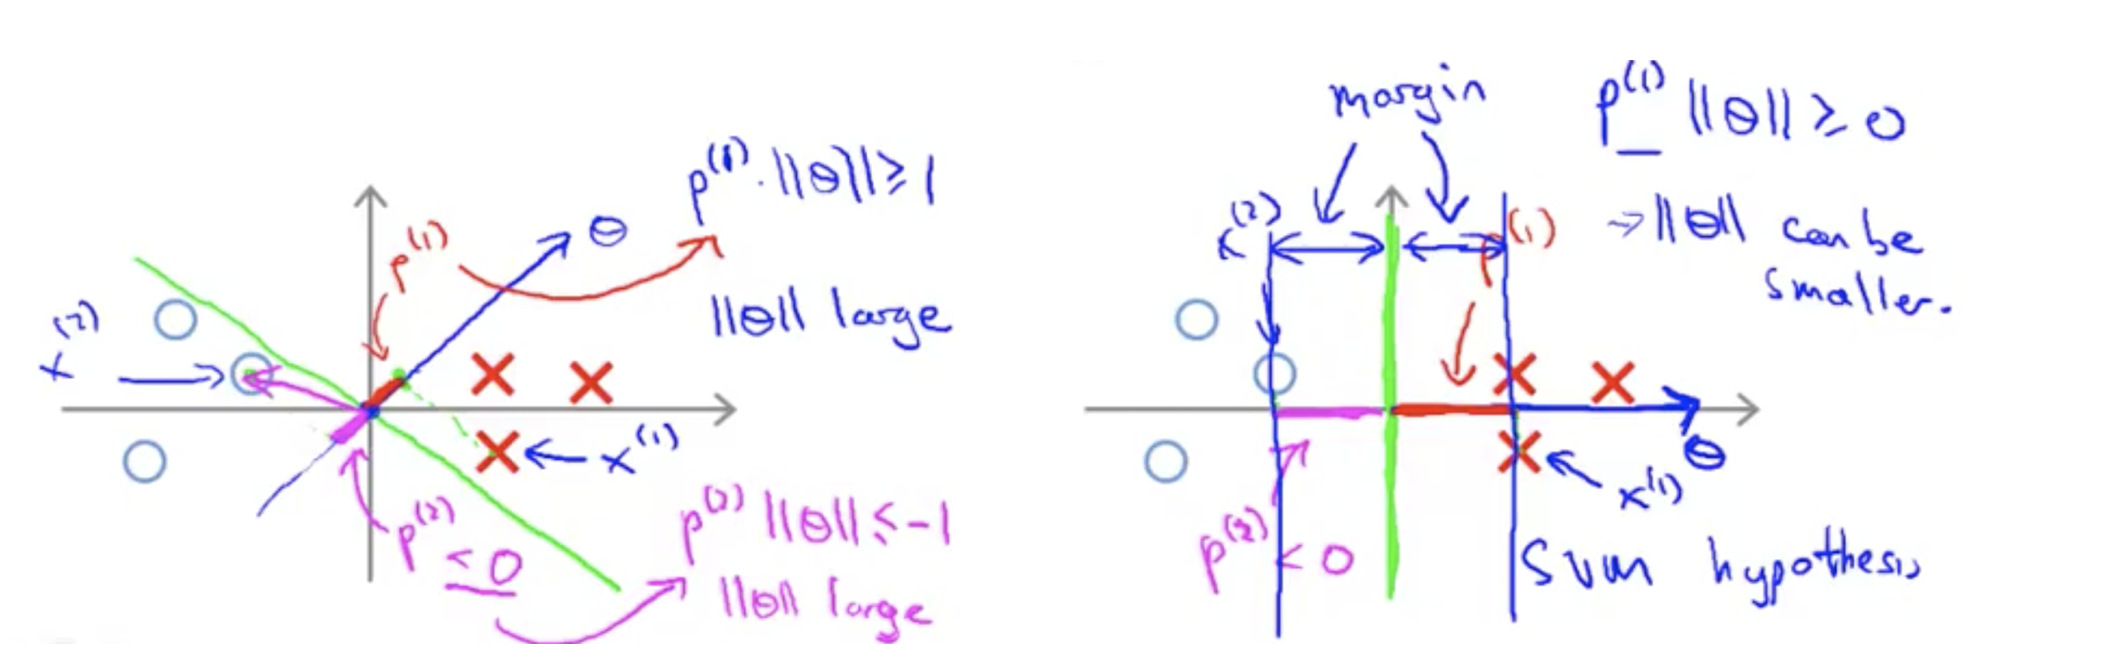 p^(1) · ||θ|| ≥ 1
p^(1)
θ
||θ|| large
x^(2)
x^(1)
p^(2) ≤ 0
p^(2) ||θ|| ≤ -1
||θ|| large
margin
p^(1) ||θ|| ≥ 0
x^(2)
p^(1)
→ ||θ|| can be
smaller.
θ
x^(1)
p^(2) < 0
SVM hypothesis